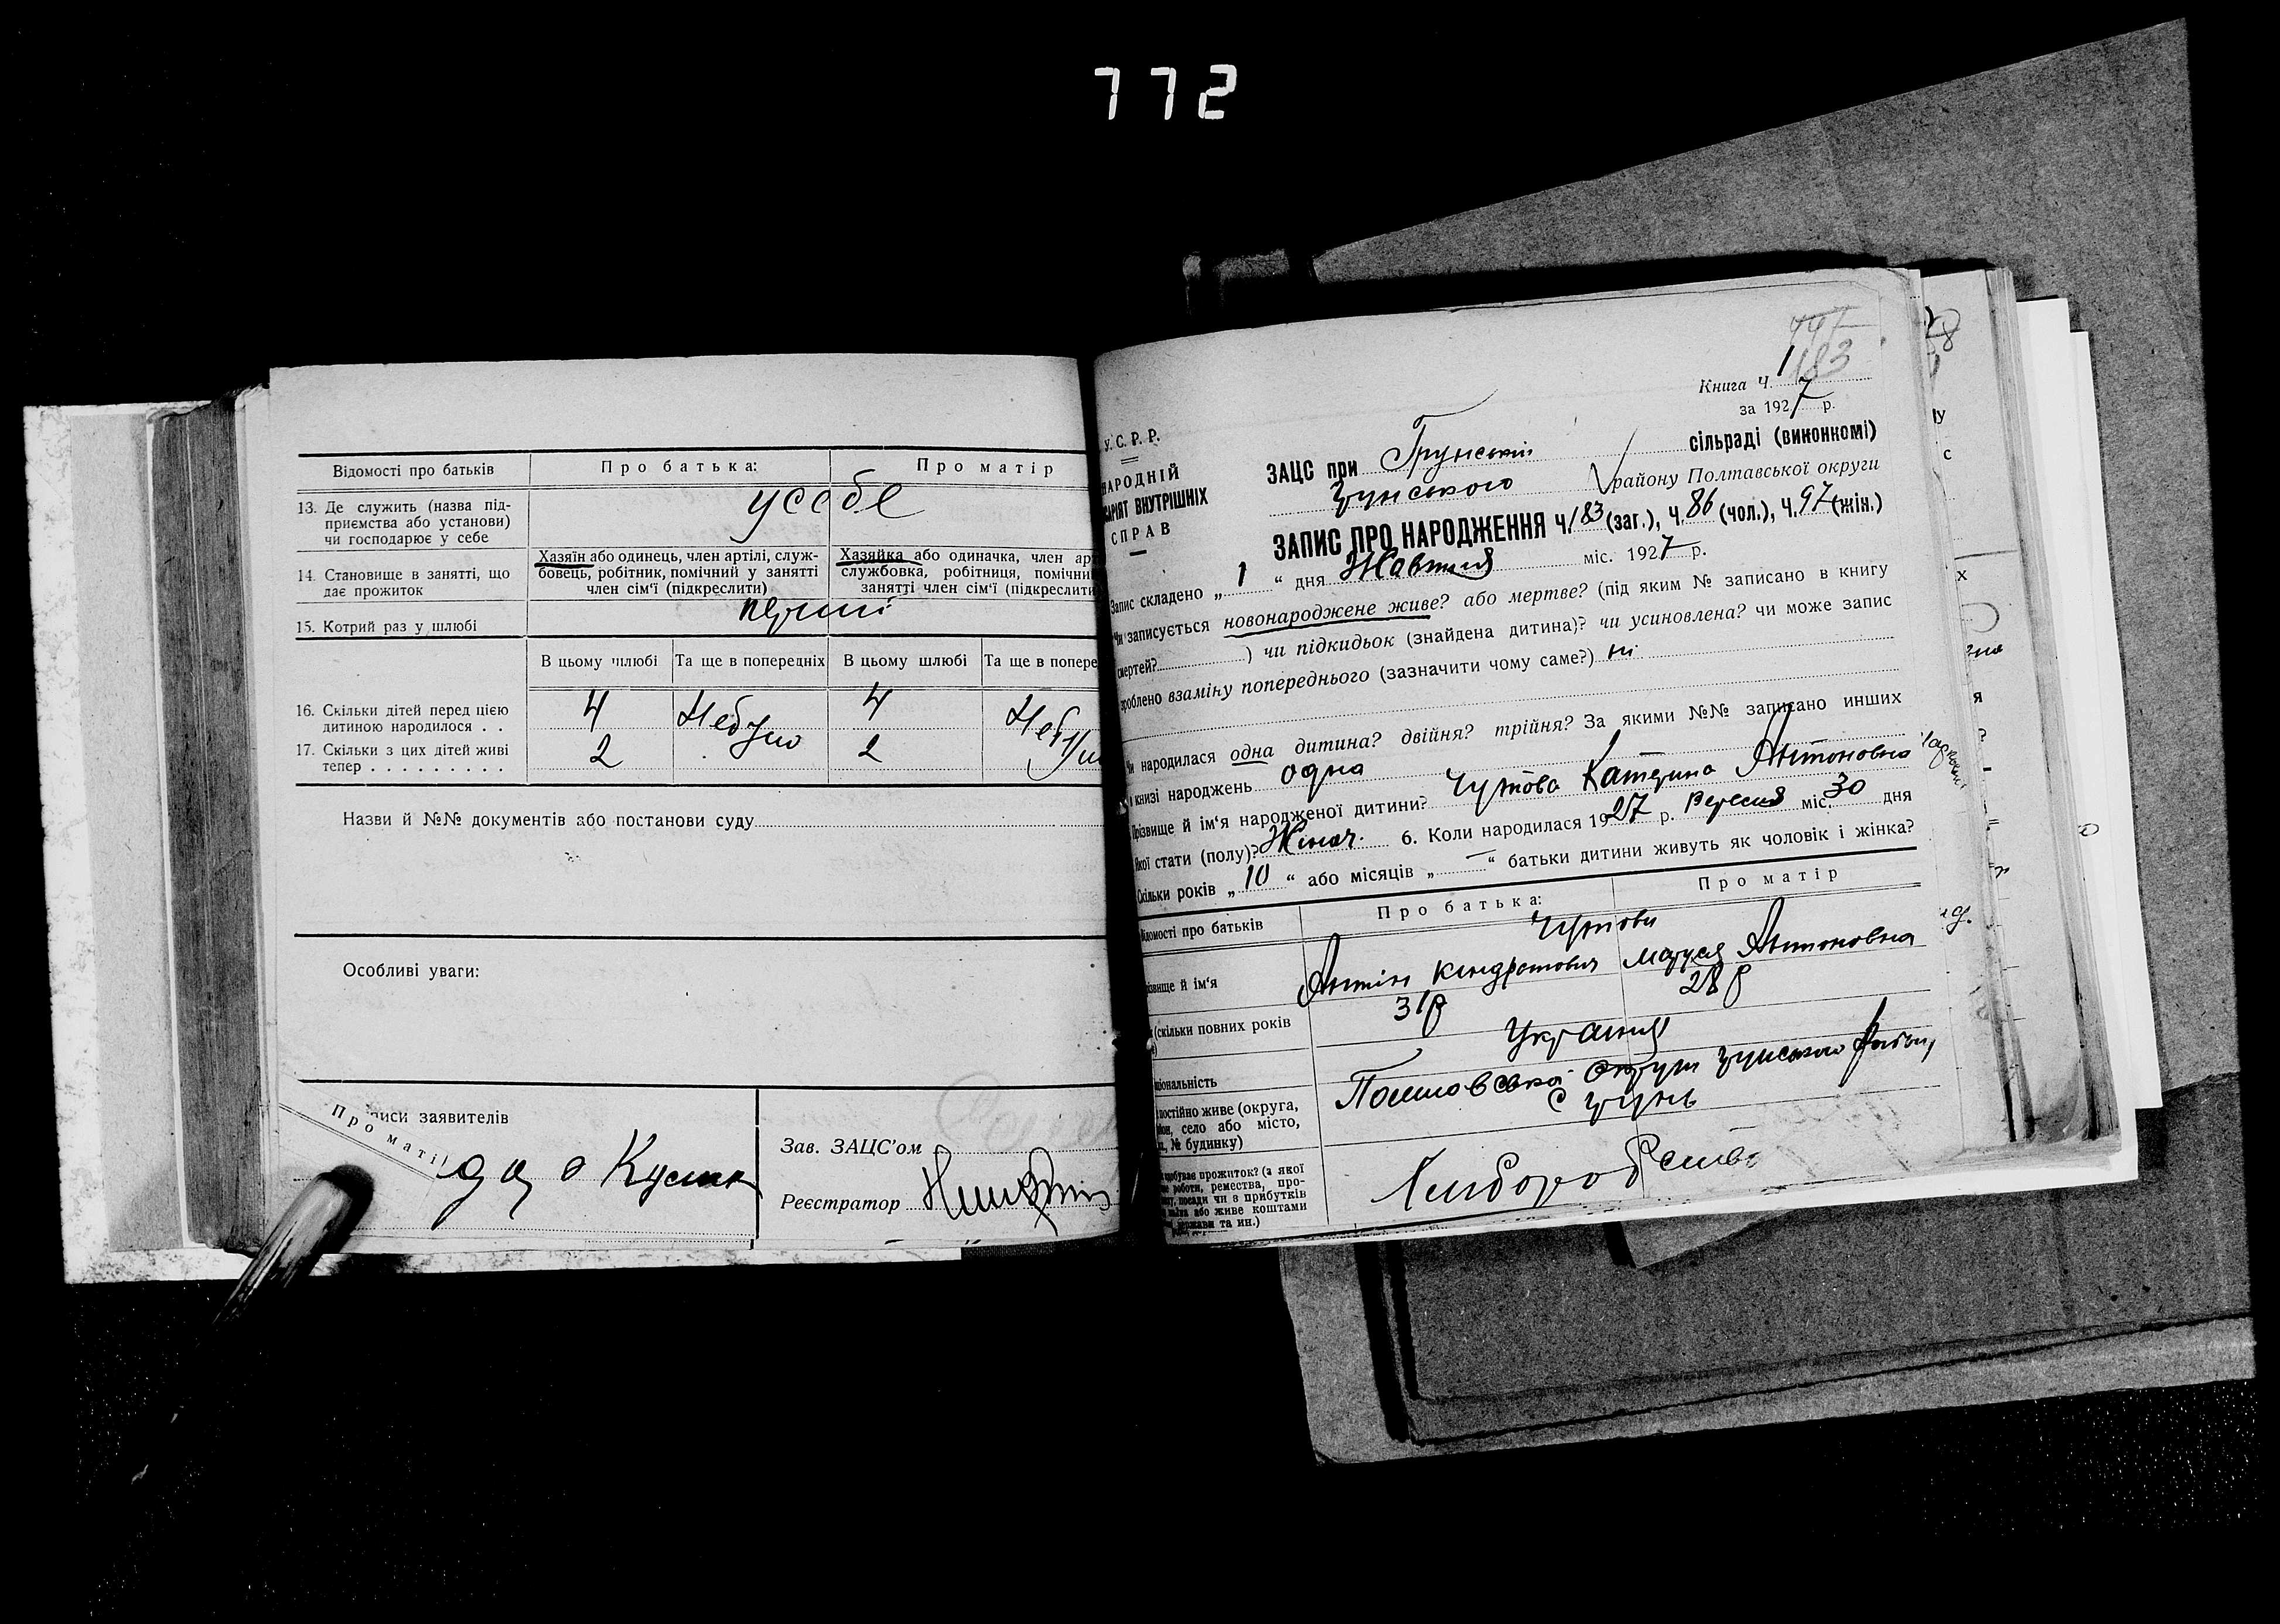 772
Відомості про батьків
Про батька:
Про матір
13. Де служить (назва під-
приємства або установи)
чи господарює у себе
усебе
14. Становище в занятті, що
дає прожиток
Хазяїн або одинець, член артілі, служ-
бовець, робітник, помічний у занятті
член сім'ї (підкреслити)
Хазяйка або одиначка, член арт
службовка, робітниця, помічни
занятті член сім'ї (підкреслити
15. Котрий раз у шлюбі
перший
В цьому шлюбі
Та ще в попередніх
В цьому шлюбі
Та ще в попере
16. Скільки дітей перед цією
дитиною народилося . .
4
Небуло
4
17. Скільки з цих дітей живі
тепер . . . . . . . . . .
2
2
Назви й №№ документів або постанови суду
Особливі уваги:
Про маті
писи заявителів
Зав. ЗАЦС'ом
Реєстратор
447
183
Книга Ч. 1
за 1927 р.
У. С. Р. Р.
НАРОДНІЙ
САРІЯТ ВНУТРІШНІХ
СПРАВ
ЗАЦС при Грунській сільраді (виконкомі)
Грунського району Полтавської округи
ЗАПИС ПРО НАРОДЖЕННЯ Ч. 183 (заг.), Ч. 86 (чол.), Ч. 97 (жін.)
Запис складено „ 1 “ дня Жовтня міс. 1927 р.
Чи записується новонароджене живе? або мертве? (під яким № записано в книгу
смертей? ) чи підкидьок (знайдена дитина)? чи усиновлена? чи може запис
зроблено взаміну попереднього (зазначити чому саме?) ні
Чи народилася одна дитина? двійня? трійня? За якими №№ записано инших
в книзі народжень одна
Прізвище й ім'я народженої дитини? Чутова Катерина Антоновна
Якої стати (полу)? Жіноч. 6. Коли народилася 1927 р. Вересня міс. 30 дня
Скільки років „ 10 “ або місяців „ — “ батьки дитини живуть як чоловік і жінка?
Відомості про батьків
Про батька:
Про матір
Чутови
ізвище й ім'я
Антін Кіндратович
Маруся Антоновна
(скільки повних років
31 р
28 р
ціональність
Україниця
постійно живе (округа,
йон, село або місто,
, № будинку)
Полтавська округи Грунського району
с Грунь
здобуває прожиток? (з якої
роботи, ремества, про-
, посади чи з прибутків
або живе коштами
держави та ин.)
Хліборобство